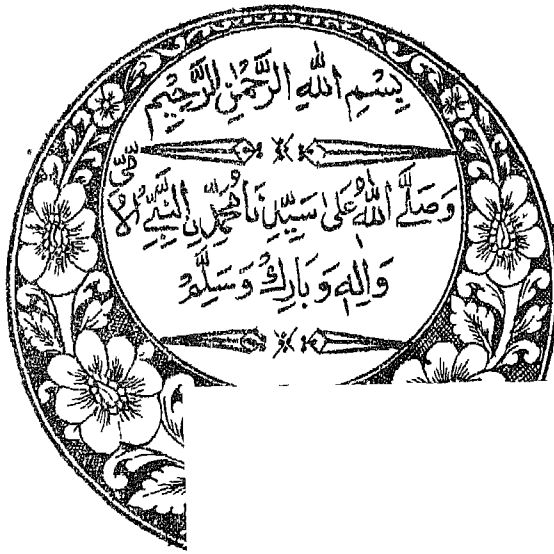 بِسْمِ اللهِ الرَّحْمٰنِ الرَّحِيْمِ
وَصَلَّى اللهُ عَلٰى سَيِّدِنَا مُحَمَّدِنِ النَّبِيِّ الْاُمِّيِّ
وَاٰلِهٖ وَبَارِكْ وَسَلِّمْ